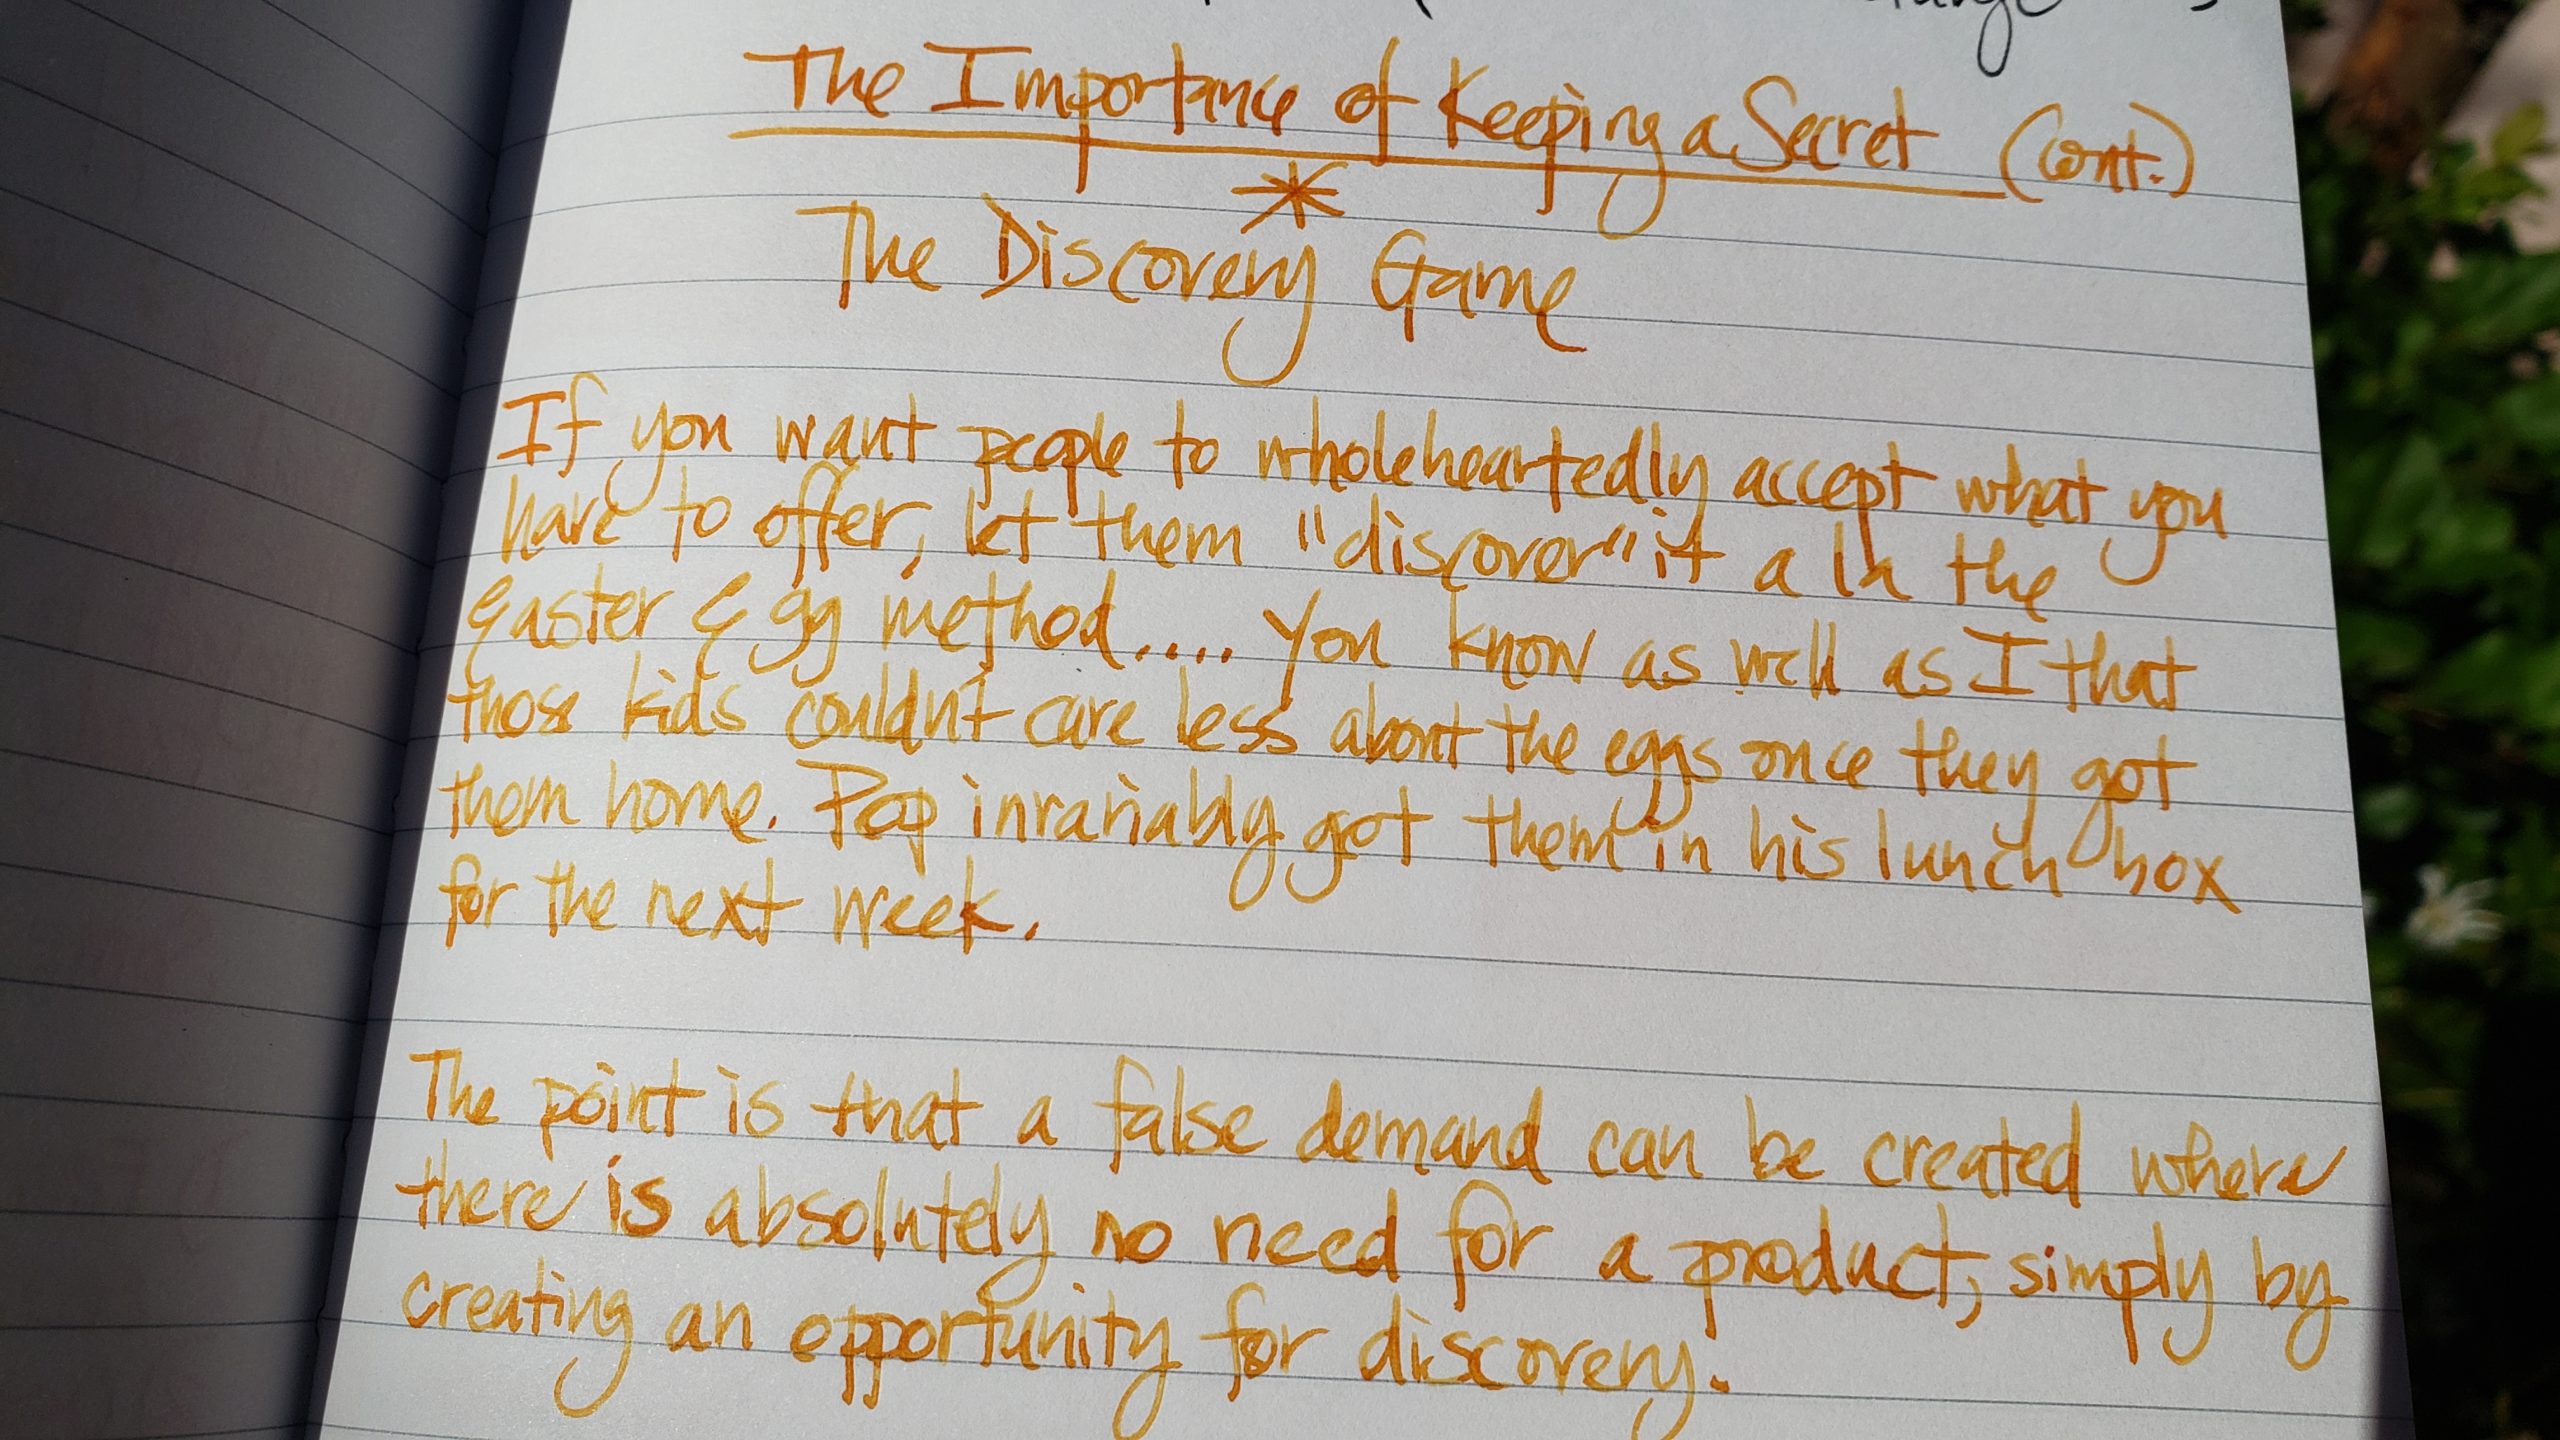 The Importance of Keeping a Secret (cont.)
*
The Discovery Game
If you want people to wholeheartedly accept what you
have to offer, let them "discover" it a la the
Easter Egg method..... You know as well as I that
those kids couldn't care less about the eggs once they got
them home. Pop invariably got them in his lunch box
for the next week.
The point is that a false demand can be created where
there is absolutely no need for a product, simply by
creating an opportunity for discovery.